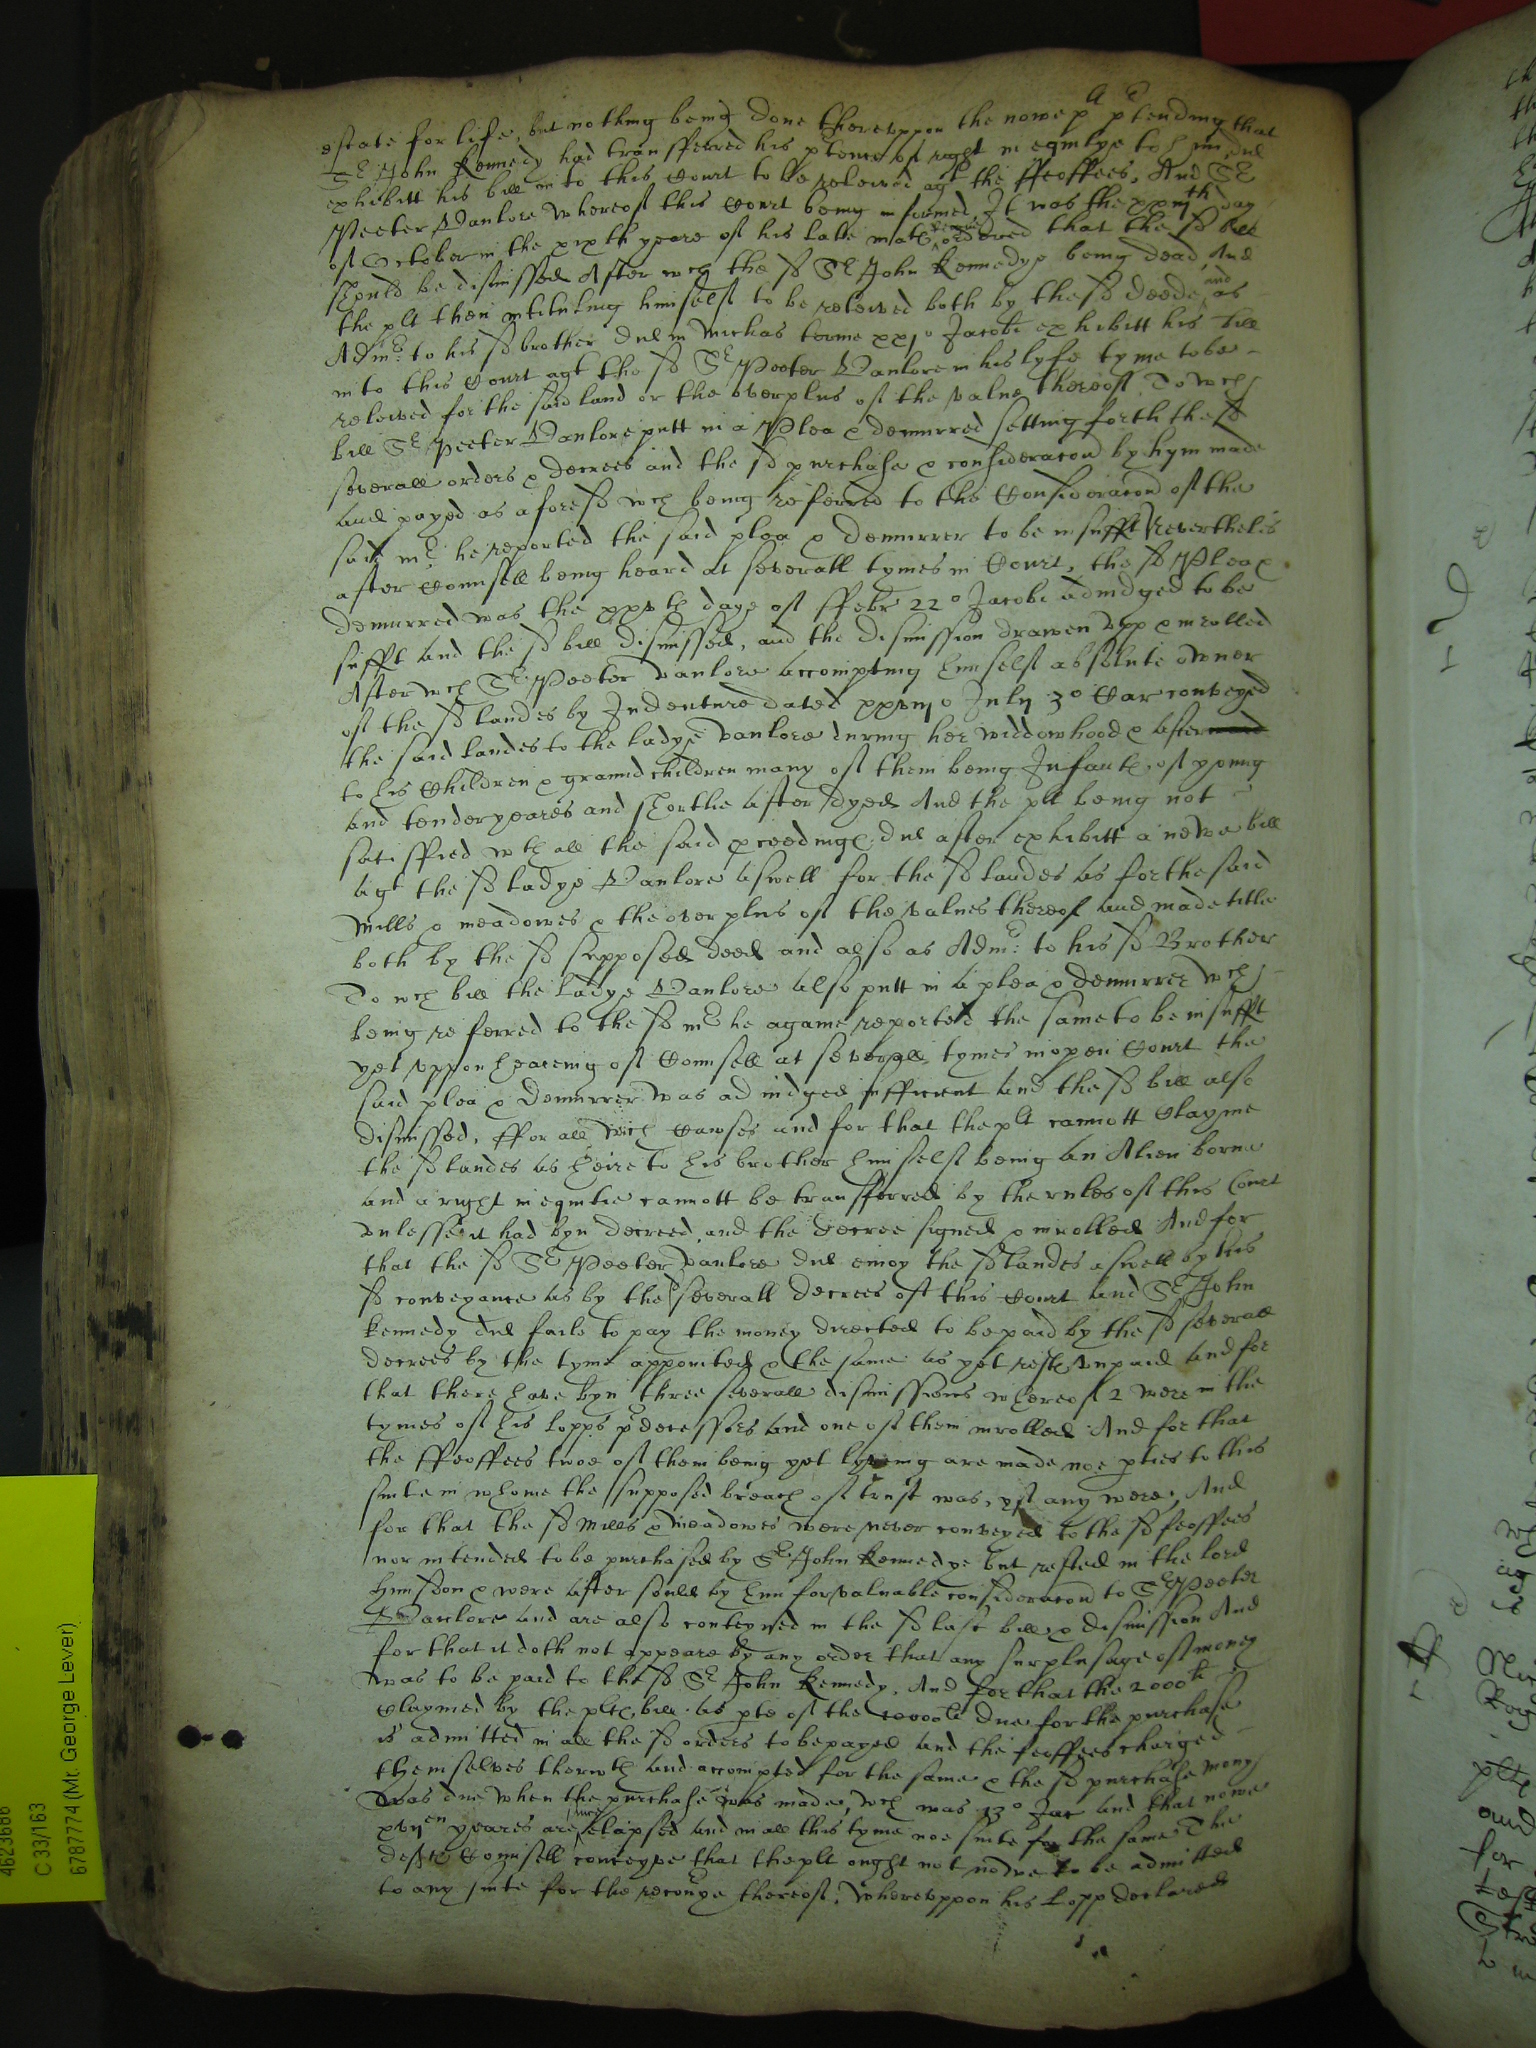 estate for life, but nothing being done thereuppon the nowe plt ptending that
Sr John Kennedy had transferred his ptence of right in equitye to him, did
exhibitt his bill in to this Court to be releived agt the ffeoffees, And Sr
Peeter Vanlore whereof this Court being informed, It was the xxiijth day
of October in the xixth yeare of his late matie ordered that the sd bill
should be dismissed After wch the sd Sr John Kennedye being dead, And
the plt then intituling himself to be releived both by the sd deede and as
Admr: to his sd brother did in Michas terme xxjo Jacobi exhibitt his bill
in to this Court agt the sd Sr Peeter Vanlore in his lyfe tyme to be
releived for the said land or the overplus of the value thereof To wch
bill Sr Peeter Vanlore putt in a Plea & demurred setting forth the sd
severall orders & decrees and the sd purchase & consideracon by hym made
and payed as aforesd wch being referred to the Consideracon of the
said mr he reported the said plea & demurrer to be insufft Neverthelis
after Counsell being heard at severall tymes in Court, the sd Plea &
demurrer was the xxvth daye of ffebr 22o Jacobi adiudged to be
sufft and the sd bill dismissed, and the dismission drawen upp & inrolled
After wch Sr Peeter Vanlore accompting himself absolute owner
of the sd landes by Indenture dated xxvijo July 3o Car conveyed
the said landes to the ladye Vanlore during her widdowhood & after
to his Children & graundchildren many of them being Infantes of young
and tender yeares and shortlie after dyed And the plt being not
satisffied wth all the said proceedinges did after exhibitt a newe bill
agt the sd ladye Vanlore aswell for the sd landes as for the said
Mills & meadowes & the overplus of the values thereof and made title
both by the sd supposed deed and also as Admr: to his sd Brother
To wch bill the ladye Vanlore also putt in a plea & demurrer wch
being referred to the sd mr he againe reported the same to be insufft
yet uppon hearing of Counsell at severall tymes in open Court the
said plea & demurrer was adiudged sufficient and the sd bill also
dismissed, ffor all wch Cawses and for that the plt cannott Clayme
the sd landes as heire to his brother himself being an Alien borne
and a right in equitie cannott be transferred by the rules of this Court
unlesse it had byn decreed, and the decree signed & inrolled And for
that the sd Sr Peeter Vanlore did enioy the sd landes aswell by his
sd conveyance as by the severall decrees of this Court and Sr John
Kennedy did faile to pay the money directed to be paid by the sd severall
decrees by the tyme appointed & the same as yet restes unpaid and for
that there have byn three severall dismissions whereof 2 were in the
tymes of his Lopps pdecessors and one of them inrolled And for that
the ffeoffees twoe of them being yet lyveing are made noe pties to this
suite in whome the supposed breach of trust was, yf any were, And
for that the sd Mills & meadowes were never conveyed to the sd feoffees
nor intended to be purchased by Sr John Kennedye but rested in the lord
Hunsdon & were after sould by him for valuable consideracon to Sr Peeter
Vanlore and are also conteyned in the sd last bill & dismission And
for that it doth not appeare by any order that any surplusage of money
was to be paid to the sd Sr John Kennedy, And for that the 2000li
Claymed by the pltes bill as pte of the due for the purchase
is admitted in all the sd orders to be payed and the feoffees charged
themselves therwth and accompted for the same & the sd purchase mony
was due when the purchase was made, wch was 13o Jac and that nowe
xvijen yeares are since elapsed and in all this tyme noe suite for the same The
deftes Counsell conceyve that the plt ought not nowe to be admitted
to any suite for the recoverye thereof. Whereuppon his Lopp declared
4623688
C 33/163
67877774 (Mt. George Lever)